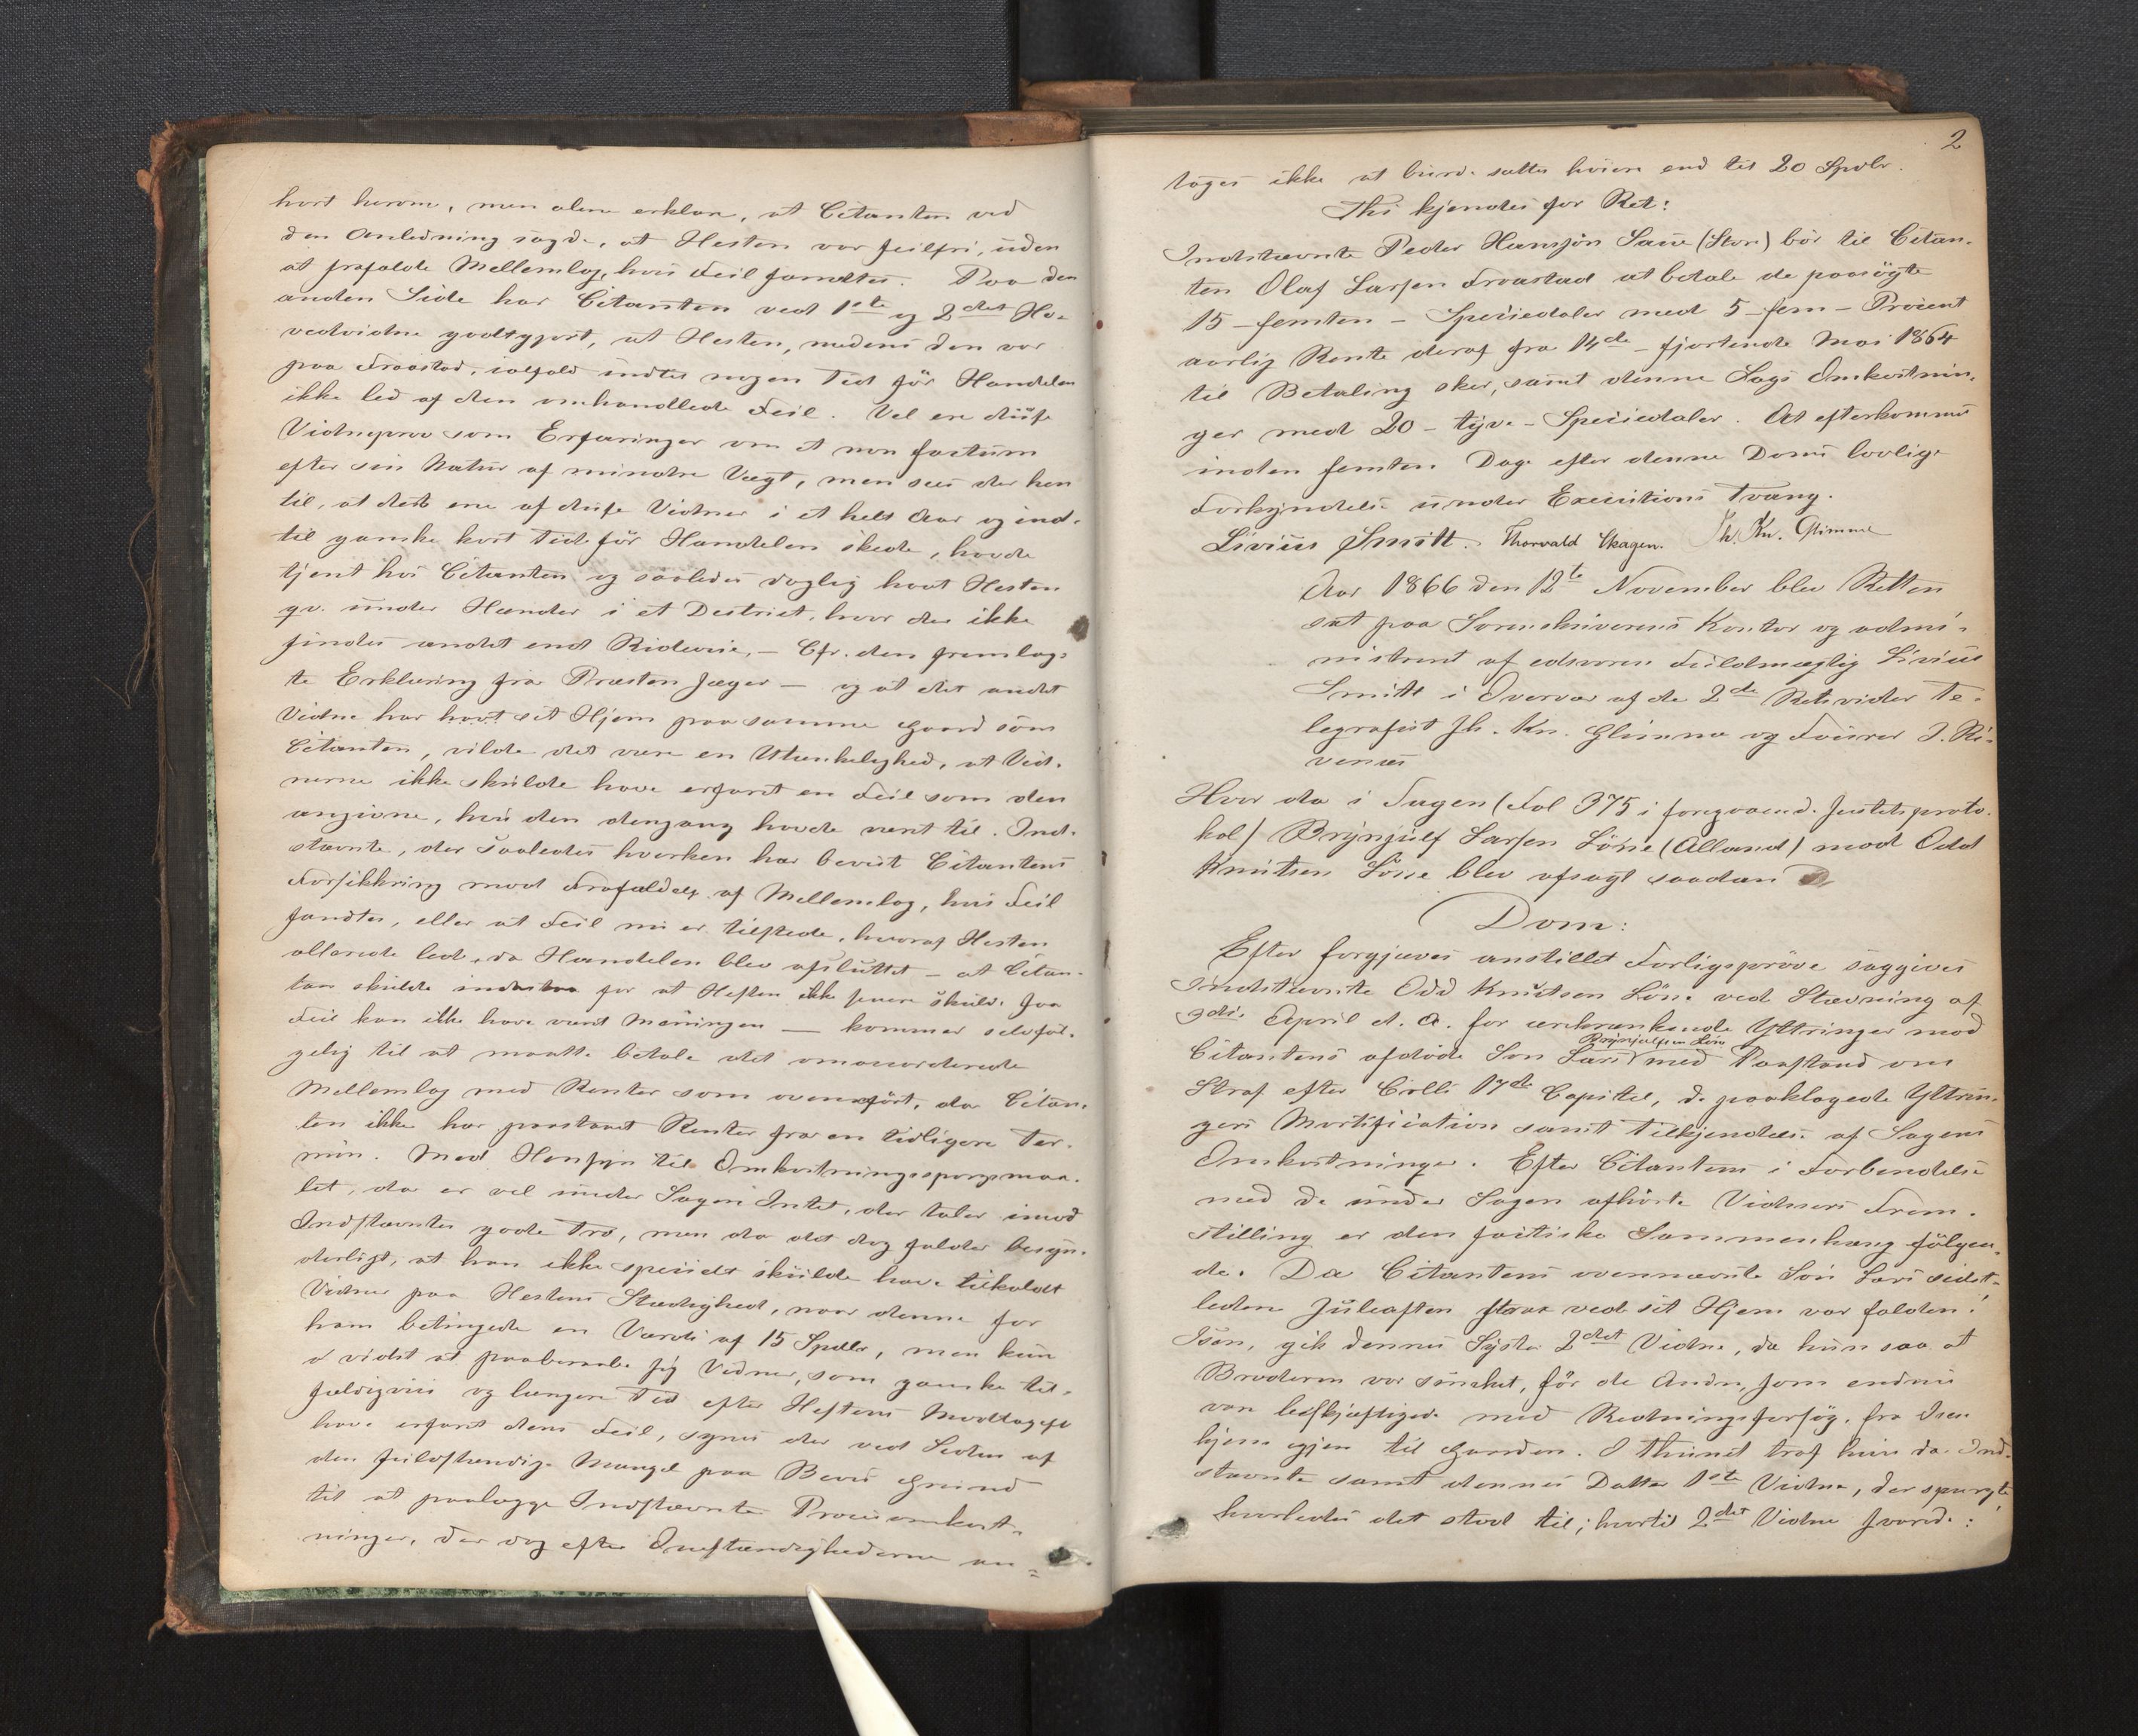 hørt herom, men alene erklære, at Citanten ved
den Anledning sagde, at Hesten var feilfri, uden
at frafalde Mellemlag, hvis Feil fandtes. Paa den
anden Side har Citanten ved 1ste og 2det Ho-
vedvidne godtgjort, at Hesten, medens den var
paa Fraastad, ialfald indtil nogen Tid før Handelen
ikke led af den omhandlede Feil. Vel ere disse
Vidneprov som Erfaringer om et non factum
efter sin Natur af mindre Vægt, men sees der hen
til, at det ene af disse Vidner i et helt Aar og ind-
til ganske kort Tid før Handelen skede, havde
tjent hos Citanten og saaledes daglig havt Hesten
qv. under Hænder i et District, hvor der ikke
findes andet end Rideveie, – Cfr. den fremlag-
te Erklæring fra Præsten Jæger – og at det andet
Vidne har havt sit Hjem paa samme Gaard som
Citanten, vilde det være en Utænkelighed, at Vid-
nerne ikke skulde have erfaret en Feil som den
angivne, hvis den dengang havde været til. Ind-
stævnte, der saaledes hverken har bevist Citantens
Forsikkring mod Frafaldelse af Mellemlag, hvis Feil
fandtes, eller at Feil nu er tilstede, hvoraf Hesten
allerede led, da Handelen blev afsluttet – at Citan-
ten skulde indestaa for at Hesten ikke senere skulde faa
Feil kan ikke have været Meningen – kommer selvføl-
gelig til at maatte betale det omaccorderede
Mellemlag med Renter som ovenanført, da Citan-
ten ikke har paastaaet Renter fra en tidligere Ter-
min. Med Hensyn til Omkostningsspørgsmaa-
let, da er vel under Sagen Intet, der taler imod
Indstævntes gode Tro, men da det dog falder besyn-
derligt, at han ikke specielt skulde have tilkaldt
Vidner paa Hestens Stædighed, naar denne for
ham betingede en Værdi af 15 Spdlr, men kun
vidst at paaberaabe sig Vidner, som ganske til-
fældigviis og længere Tid efter Hestens Modtagelse
have erfaret dens Feil, synes der ved Siden af
den fuldstændige Mangel paa Bevis Grund
til at paalægge Indstævnte Procesomkost-
ninger, der dog efter Omstændighederne an-
2
tages ikke at burde sættes høiere end til 20 Spdlr.
Thi kjendes for Ret:
Indstævnte Peder Hansjøn Saue (Store) bør til Citan-
ten Olaf Larsen Fraastad at betale de paasøgte
15 – femten – Speciedaler med 5 – fem – Procent
aarlig Rente deraf fra 14de – fjortende Mai 1864
til Betaling sker, samt denne Sags Omkostnin-
ger med 20 – tyve – Speciedaler. At efterkommes
inden femten Dage efter denne Doms lovlige
Forkyndelse under Executions Tvang.
Livius Smitt. Thorvald Skagen. Jh. Kn. Glimme
Aar 1866 den 12te November blev Retten
sat paa Sorenskriverens Kontor og admi-
nistreret af edsvoren Fuldmægtig Livius
Smitt i Overvær af de 2de Retsvidner Te-
legrafist Jh. Kn. Glimme og Fourer J. Ri-
venæs
Hvor da i Sagen (Fol 375 i foregaaende Justitsproto-
kol) Brynjulf Larsen Løne (Alland) mod Odd
Knutsen Løne blev afsagt saadan
Dom:
Efter forgjæves anstillet Forligsprøve saggives
Indstævnte Odd Knutsen Løne ved Stævning af
3die April d. A. for ærekrænkende Yttringer mod
Brynjulfsen Løne
Citantens afdøde Søn Lars med Paastand om
Straf efter Crlls 17de Capitel, de paaklagede Yttrin-
gers Mortification samt Tilkjendelse af Sagens
Omkostninger. Efter Citantens i Forbindelse
med de under Sagen afhørte Vidners Frem-
stilling er den factiske Sammenhæng følgen-
de. Da Citantens ovennævnte Søn Lars sidst-
leden Juleaften strax ved sit Hjem var falden i
Isen, gik dennes Syster 2det Vidne, da hun saa at
Broderen var sunket, før de Andre, som endnu
var beskjæftigede med Redningsforsøg, fra Isen
hjem igjen til Gaarden. I Thunet traf hun da Ind-
stævnte samt dennes Datter 1ste Vidne, der spurgte,
hvorledes det stod til; hvortil 2det Vidne svarede: